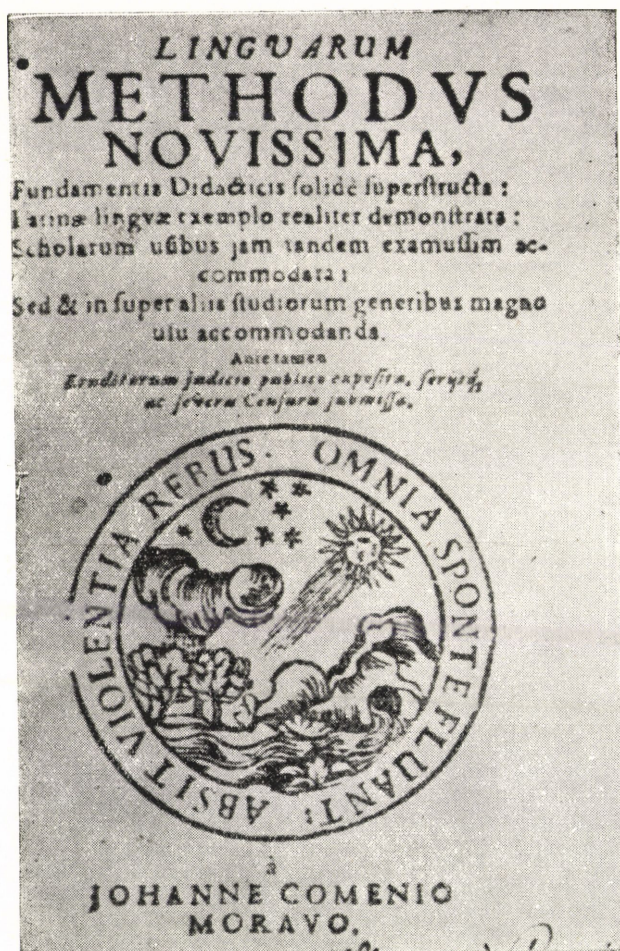 LINGVARUM
METHODVS
NOVISSIMA,
Fundamentis Didacticis solidè superstructa:
Latinæ lingvæ exemplo realiter demonstrata:
Scholarum usibus jam tandem examussim ac-
commodata:
Sed & insuper aliis studiorum generibus magno
usu accommodanda.
Ante tamen
Eruditorum judicio publico exposita, seriisq;
ac severæ Censuræ submissa.
OMNIA SPONTE FLUANT: ABSIT VIOLENTIA REBUS.
à
JOHANNE COMENIO
MORAVO.